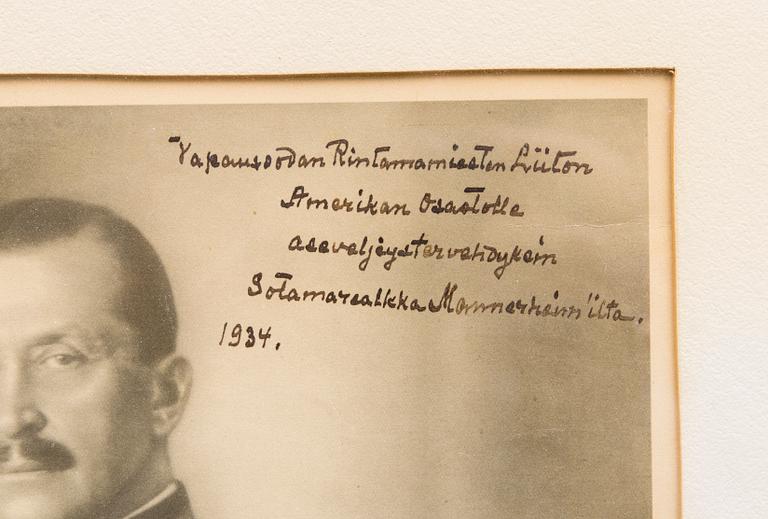 Vapaussodan Rintamamiesten Liiton
Amerikan Osastolle
aseveljeystervehdyksin
Sotamarsalkka Mannerheim'ilta.
1934.